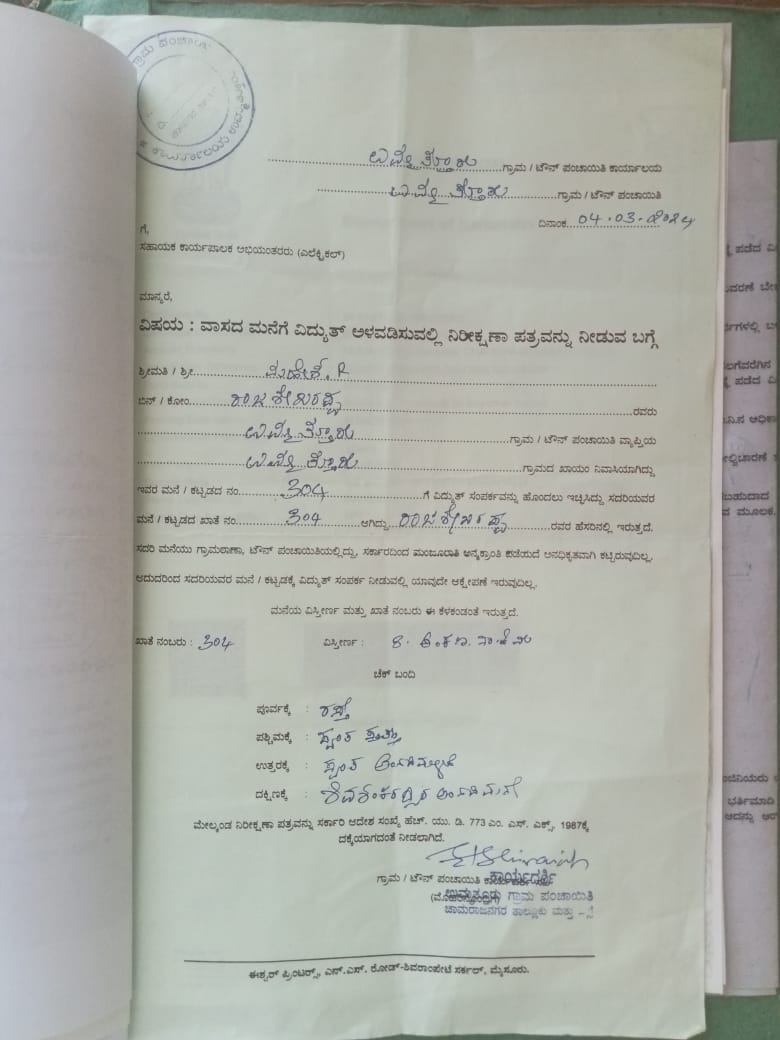 ಗ್ರಾಮ ಪಂಚಾಯಿ
ಕಾರ್ಯಾಲಯ
ಉಮ್ಮತ್ತೂರು ಗ್ರಾಮ / ಟೌನ್ ಪಂಚಾಯಿತಿ ಕಾರ್ಯಾಲಯ
ಉಮ್ಮತ್ತೂರು ಗ್ರಾಮ / ಟೌನ್ ಪಂಚಾಯಿತಿ
ದಿನಾಂಕ 04.03.2024
ಗೆ,
ಸಹಾಯಕ ಕಾರ್ಯಪಾಲಕ ಅಭಿಯಂತರರು (ಎಲೆಕ್ಟ್ರಿಕಲ್)
ಮಾನ್ಯರೆ,
ವಿಷಯ : ವಾಸದ ಮನೆಗೆ ವಿದ್ಯುತ್ ಅಳವಡಿಸುವಲ್ಲಿ ನಿರೀಕ್ಷಣಾ ಪತ್ರವನ್ನು ನೀಡುವ ಬಗ್ಗೆ
ಶ್ರೀಮತಿ / ಶ್ರೀ ಮಹೇಶ. R
ಬಿನ್ / ಕೋಂ ರಾಜಶೇಖರಪ್ಪ ರವರು
ಉಮ್ಮತ್ತೂರು ಗ್ರಾಮ / ಟೌನ್ ಪಂಚಾಯಿತಿ ವ್ಯಾಪ್ತಿಯ
ಉಮ್ಮತ್ತೂರು ಗ್ರಾಮದ ಖಾಯಂ ನಿವಾಸಿಯಾಗಿದ್ದು
ಇವರ ಮನೆ / ಕಟ್ಟಡದ ನಂ 304 ಗೆ ವಿದ್ಯುತ್ ಸಂಪರ್ಕವನ್ನು ಹೊಂದಲು ಇಚ್ಛಿಸಿದ್ದು ಸದರಿಯವರ
ಮನೆ / ಕಟ್ಟಡದ ಖಾತೆ ನಂ 304 ಆಗಿದ್ದು ರಾಜಶೇಖರಪ್ಪ ರವರ ಹೆಸರಿನಲ್ಲಿ ಇರುತ್ತದೆ.
ಸದರಿ ಮನೆಯು ಗ್ರಾಮಠಾಣಾ, ಟೌನ್ ಪಂಚಾಯಿತಿಯಲ್ಲಿದ್ದು, ಸರ್ಕಾರದಿಂದ ಮಂಜೂರಾತಿ ಅನ್ಯಕ್ರಾಂತಿ ಪಡೆಯದೆ ಅನಧಿಕೃತವಾಗಿ ಕಟ್ಟಿರುವುದಿಲ್ಲ.
ಆದುದರಿಂದ ಸದರಿಯವರ ಮನೆ / ಕಟ್ಟಡಕ್ಕೆ ವಿದ್ಯುತ್ ಸಂಪರ್ಕ ನೀಡುವಲ್ಲಿ ಯಾವುದೇ ಆಕ್ಷೇಪಣೆ ಇರುವುದಿಲ್ಲ.
ಮನೆಯ ವಿಸ್ತೀರ್ಣ ಮತ್ತು ಖಾತೆ ನಂಬರು ಈ ಕೆಳಕಂಡಂತೆ ಇರುತ್ತದೆ.
ಖಾತೆ ನಂಬರು : 304 ವಿಸ್ತೀರ್ಣ : 8. ಅಂಕಣ
ಚೆಕ್ ಬಂದಿ
ಪೂರ್ವಕ್ಕೆ : ರಸ್ತೆ
ಪಶ್ಚಿಮಕ್ಕೆ : ಸ್ವಂತ ಸ್ವತ್ತು
ಉತ್ತರಕ್ಕೆ : ಸ್ವಂತ ಅಂಗಡಿಮಳಿಗೆ
ದಕ್ಷಿಣಕ್ಕೆ : ಶಿವಶಂಕರಪ್ಪರ ಅಂಗಡಿ ಮನೆ
ಮೇಲ್ಕಂಡ ನಿರೀಕ್ಷಣಾ ಪತ್ರವನ್ನು ಸರ್ಕಾರಿ ಆದೇಶ ಸಂಖ್ಯೆ ಹೆಚ್. ಯು. ಡಿ. 773 ಎಂ. ಎಸ್. ಎಕ್ಸ್. 1987ಕ್ಕೆ
ದಕ್ಕೆಯಾಗದಂತೆ ನೀಡಲಾಗಿದೆ.
ಗ್ರಾಮ / ಟೌನ್ ಪಂಚಾಯಿತಿ ಕಾರ್ಯದರ್ಶಿ
ಉಮ್ಮತ್ತೂರು ಗ್ರಾಮ ಪಂಚಾಯಿತಿ
ಚಾಮರಾಜನಗರ ತಾಲ್ಲೂಕು ಮತ್ತು
ಈಶ್ವರ್ ಪ್ರಿಂಟರ್ಸ್, ಎನ್.ಎಸ್. ರೋಡ್-ಶಿವರಾಂಪೇಟೆ ಸರ್ಕಲ್, ಮೈಸೂರು.